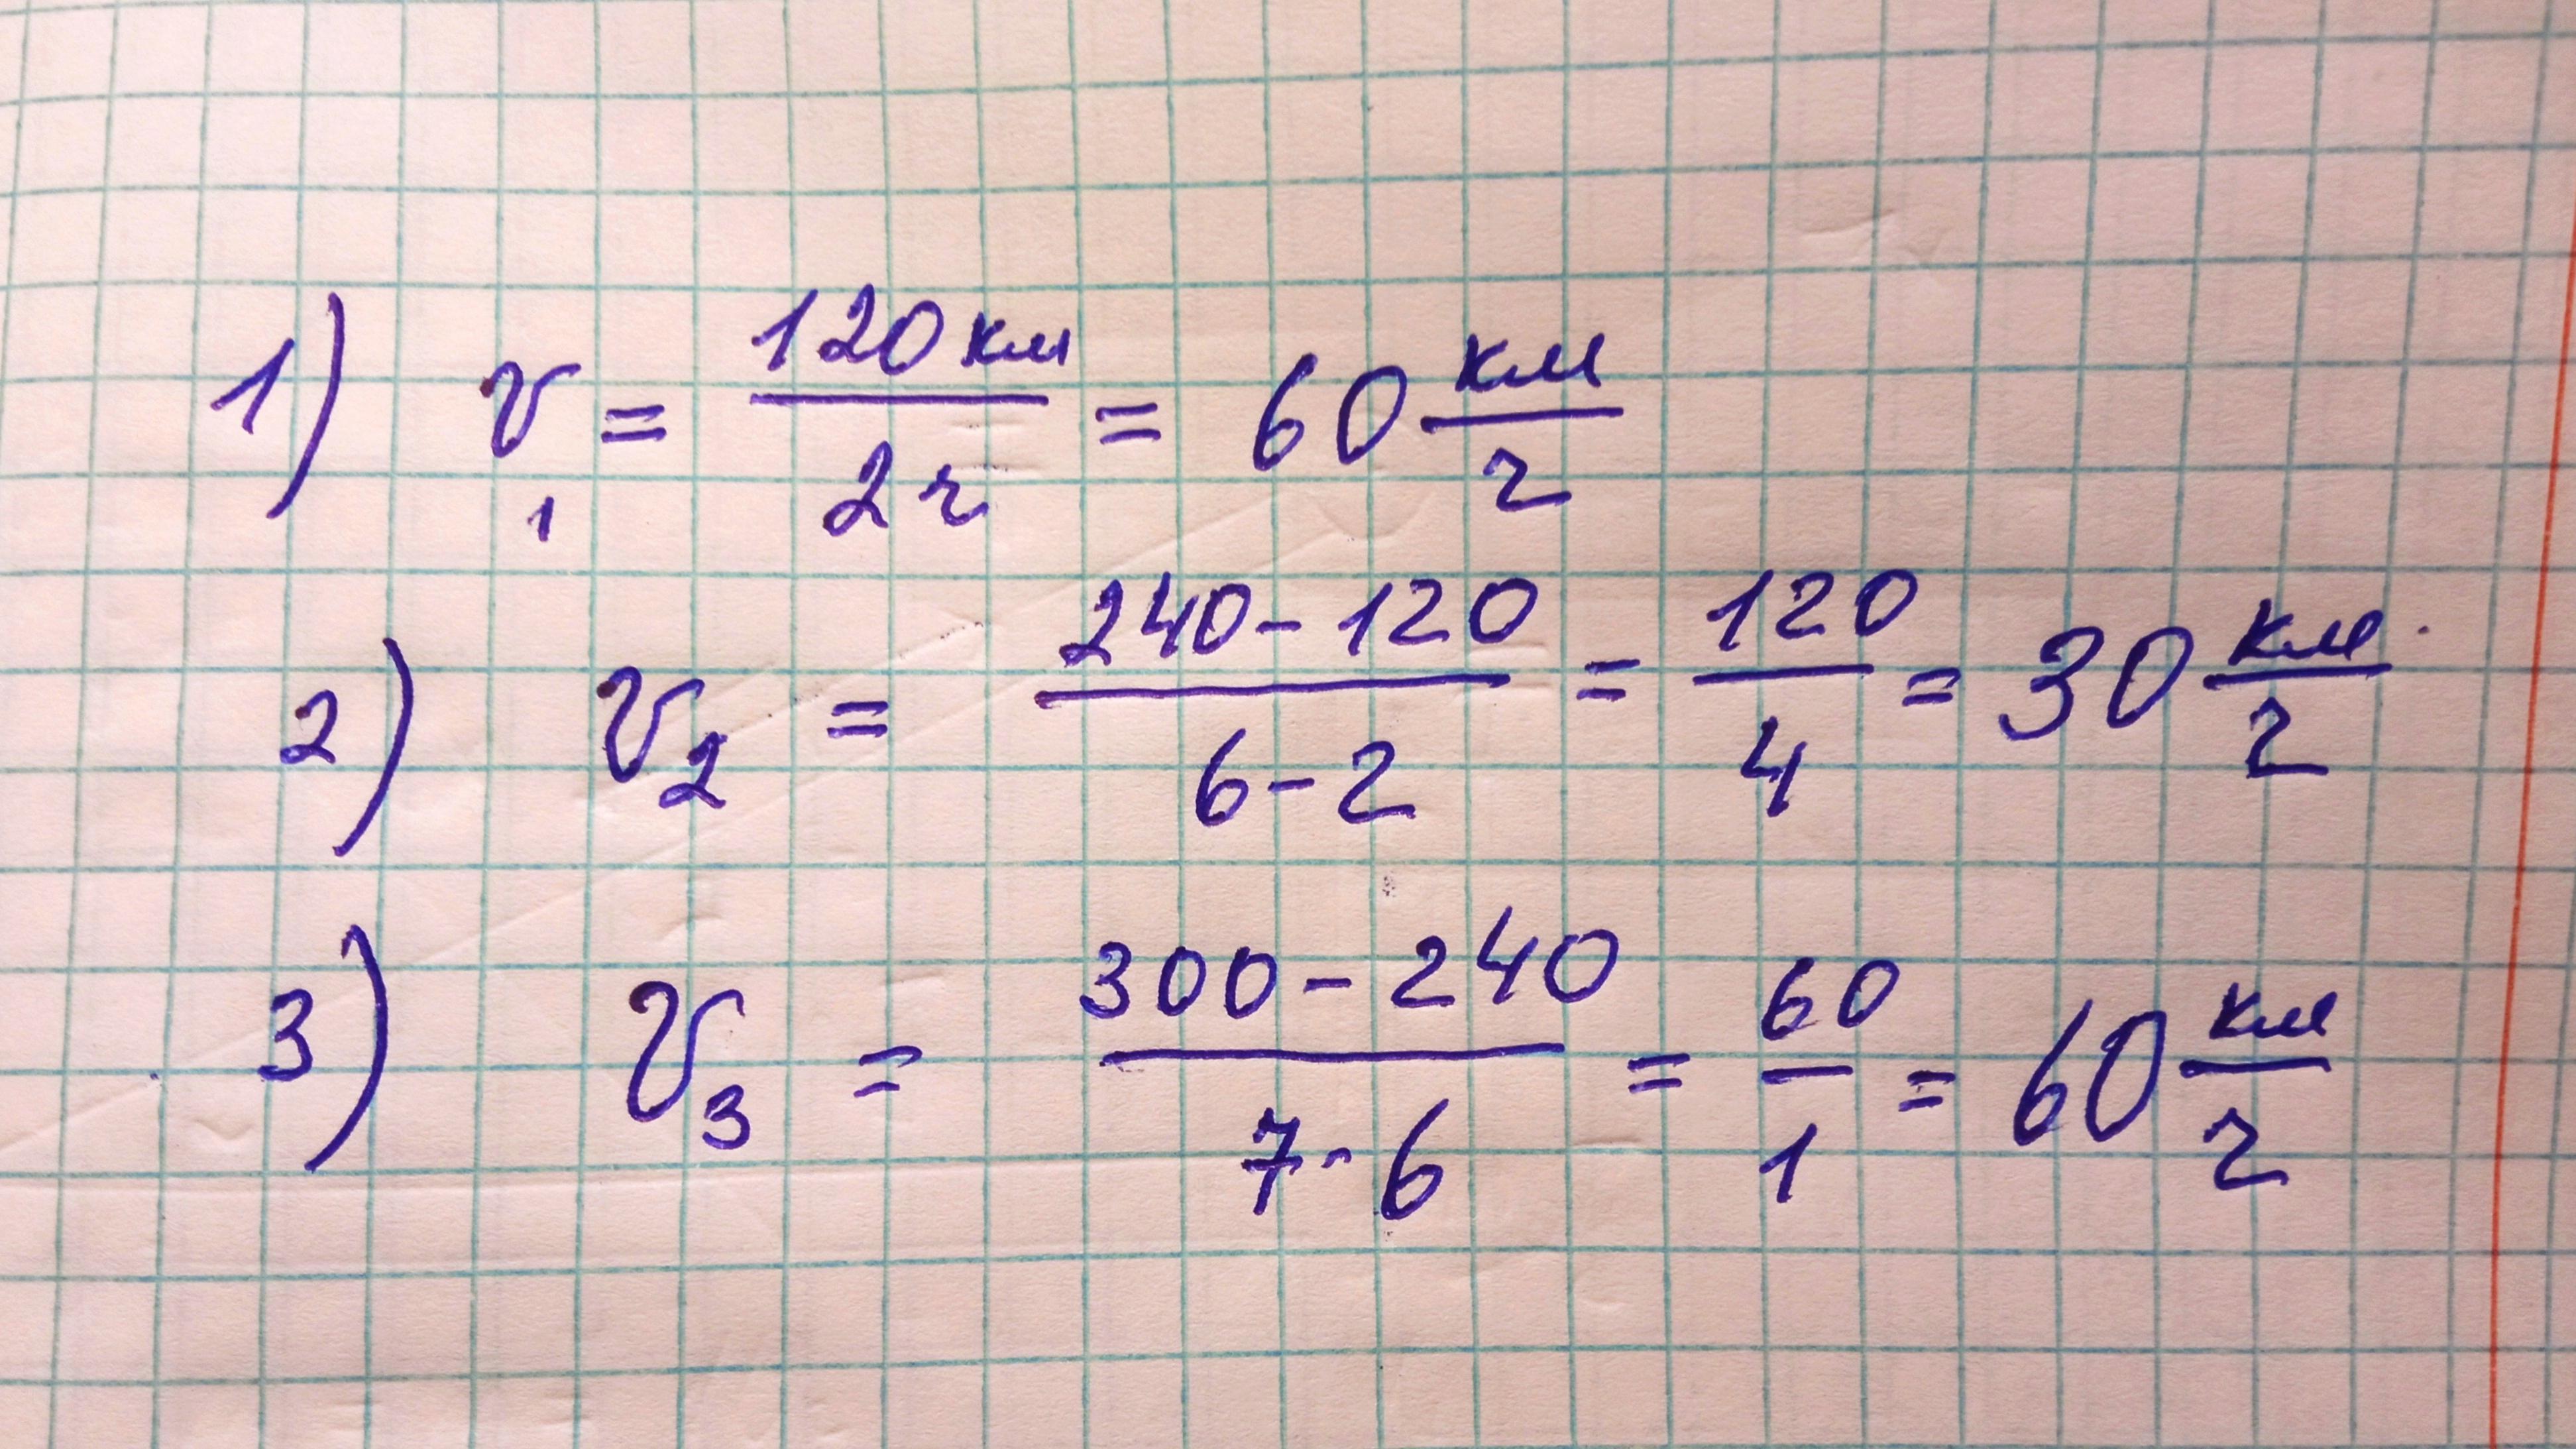 1) v₁ = 120 км / 2 ч = 60 км/ч
2) v₂ = (240 - 120) / (6 - 2) = 120 / 4 = 30 км/ч
3) v₃ = (300 - 240) / (7 - 6) = 60 / 1 = 60 км/ч